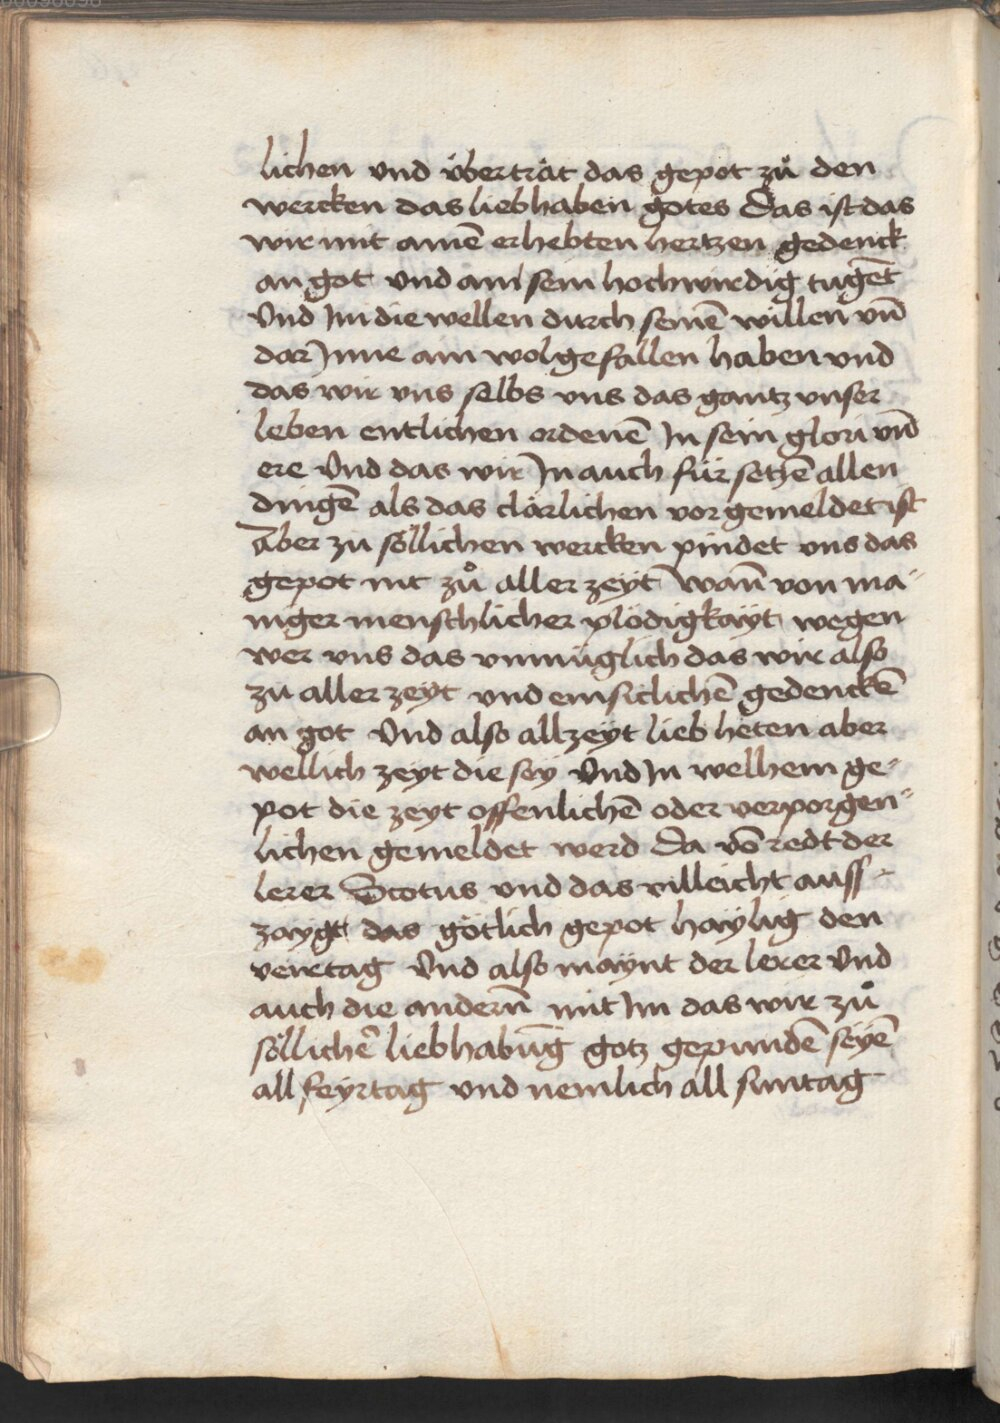 lichen vnd überträt das gepot zů den
wercken das liebhaben gotes Das ist das
wir mit ainē erhebten hertzen gedenck
an got vnd an sein hochwirdig tugēt
Vnd Im die wellen durch seinē willen vn̄
dar Inne ain wolgefallen haben vnd
das wir vns selbs vns das gantz vnser
leben entlichen ordenē In sein glori vn̄
ere Vnd das wir In auch für setzē allen
dingē als das clärlichen vor gemeldet ist
Aber zu söllichen wercken pindet vns das
gepot nit zů aller zeyt Wan̄ von ma-
niger menschlicher plödigkäyt wegen
wer vns das vnmüglich das wir also
zu aller zeyt vnd emsiclichē gedenckē
an got Vnd also allzeyt lieb heten aber
wellich zeyt die sey Vnd In welhem ge-
pot die zeyt offenlichē oder verporgen-
lichen gemeldet werd Da vō redt der
lerer Scotus vnd das villeicht auss-
zaygt das götlich gepot haylig den
veirtag Vnd also maynt der lerer Vnd
auch die andern̄ mit Im das wir zů
söllichē liebhabūg gotz gepundē seyē
all feyrtag vnd nemlich all suntag